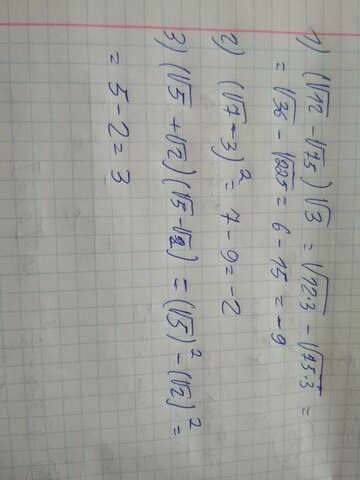 1) (√12 - √75) √3 = √12·3 - √75·3 =
= √36 - √225 = 6 - 15 = -9
2) (√7 - 3)² = 7 - 9 = -2
3) (√5 + √2)(√5 - √2) = (√5)² - (√2)² =
= 5 - 2 = 3